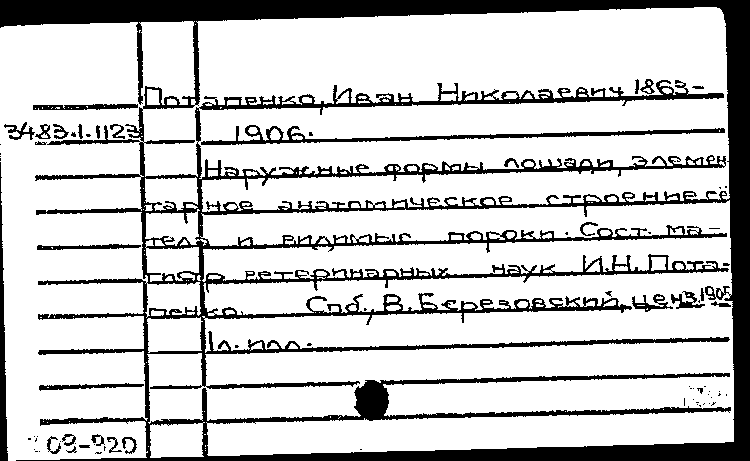 Потапенко, Иван Николаевич, 1863-
3483.1.1123 1906.
Наружные формы лошади, элемен
тарное анатомическое строение её
тела и видимые пороки. Сост. ма-
гистр ветеринарных наук И.Н. Пота-
пенко. Спб., В. Березовский, ценз. 1905
1 л. илл.
09-920